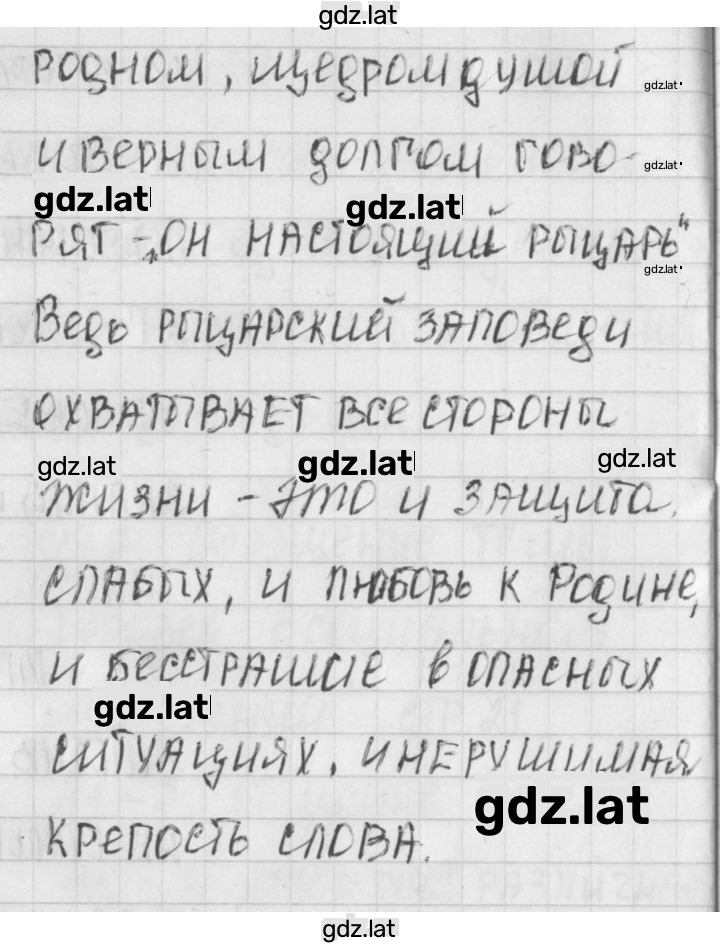 gdz.lat
родном, щедром душой
gdz.lat
и верным долгом гово-
gdz.lat
gdz.lat
gdz.lat
рят - „он настоящий рыцарь"
gdz.lat
Ведь рыцарский заповеди
охватывает все стороны
gdz.lat
gdz.lat
gdz.lat
жизни - это и защита
слабых, и любовь к Родине,
и бесстрашие в опасных
gdz.lat
ситуациях, и нерушимая
gdz.lat
крепость слова.
gdz.lat